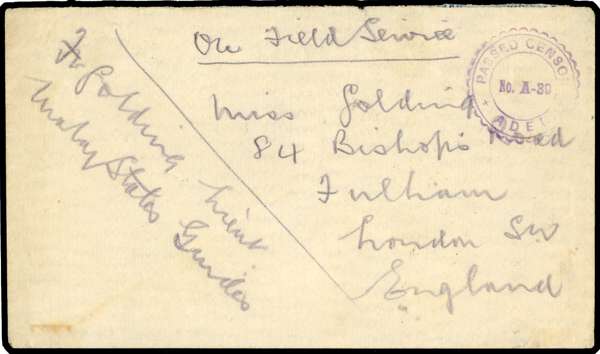 On Field Service
Golding Lieut
Malay States Guides
Miss Golding
84 Bishops Road
Fulham
London SW
England
PASSED CENSOR
No. A-30
ADEN